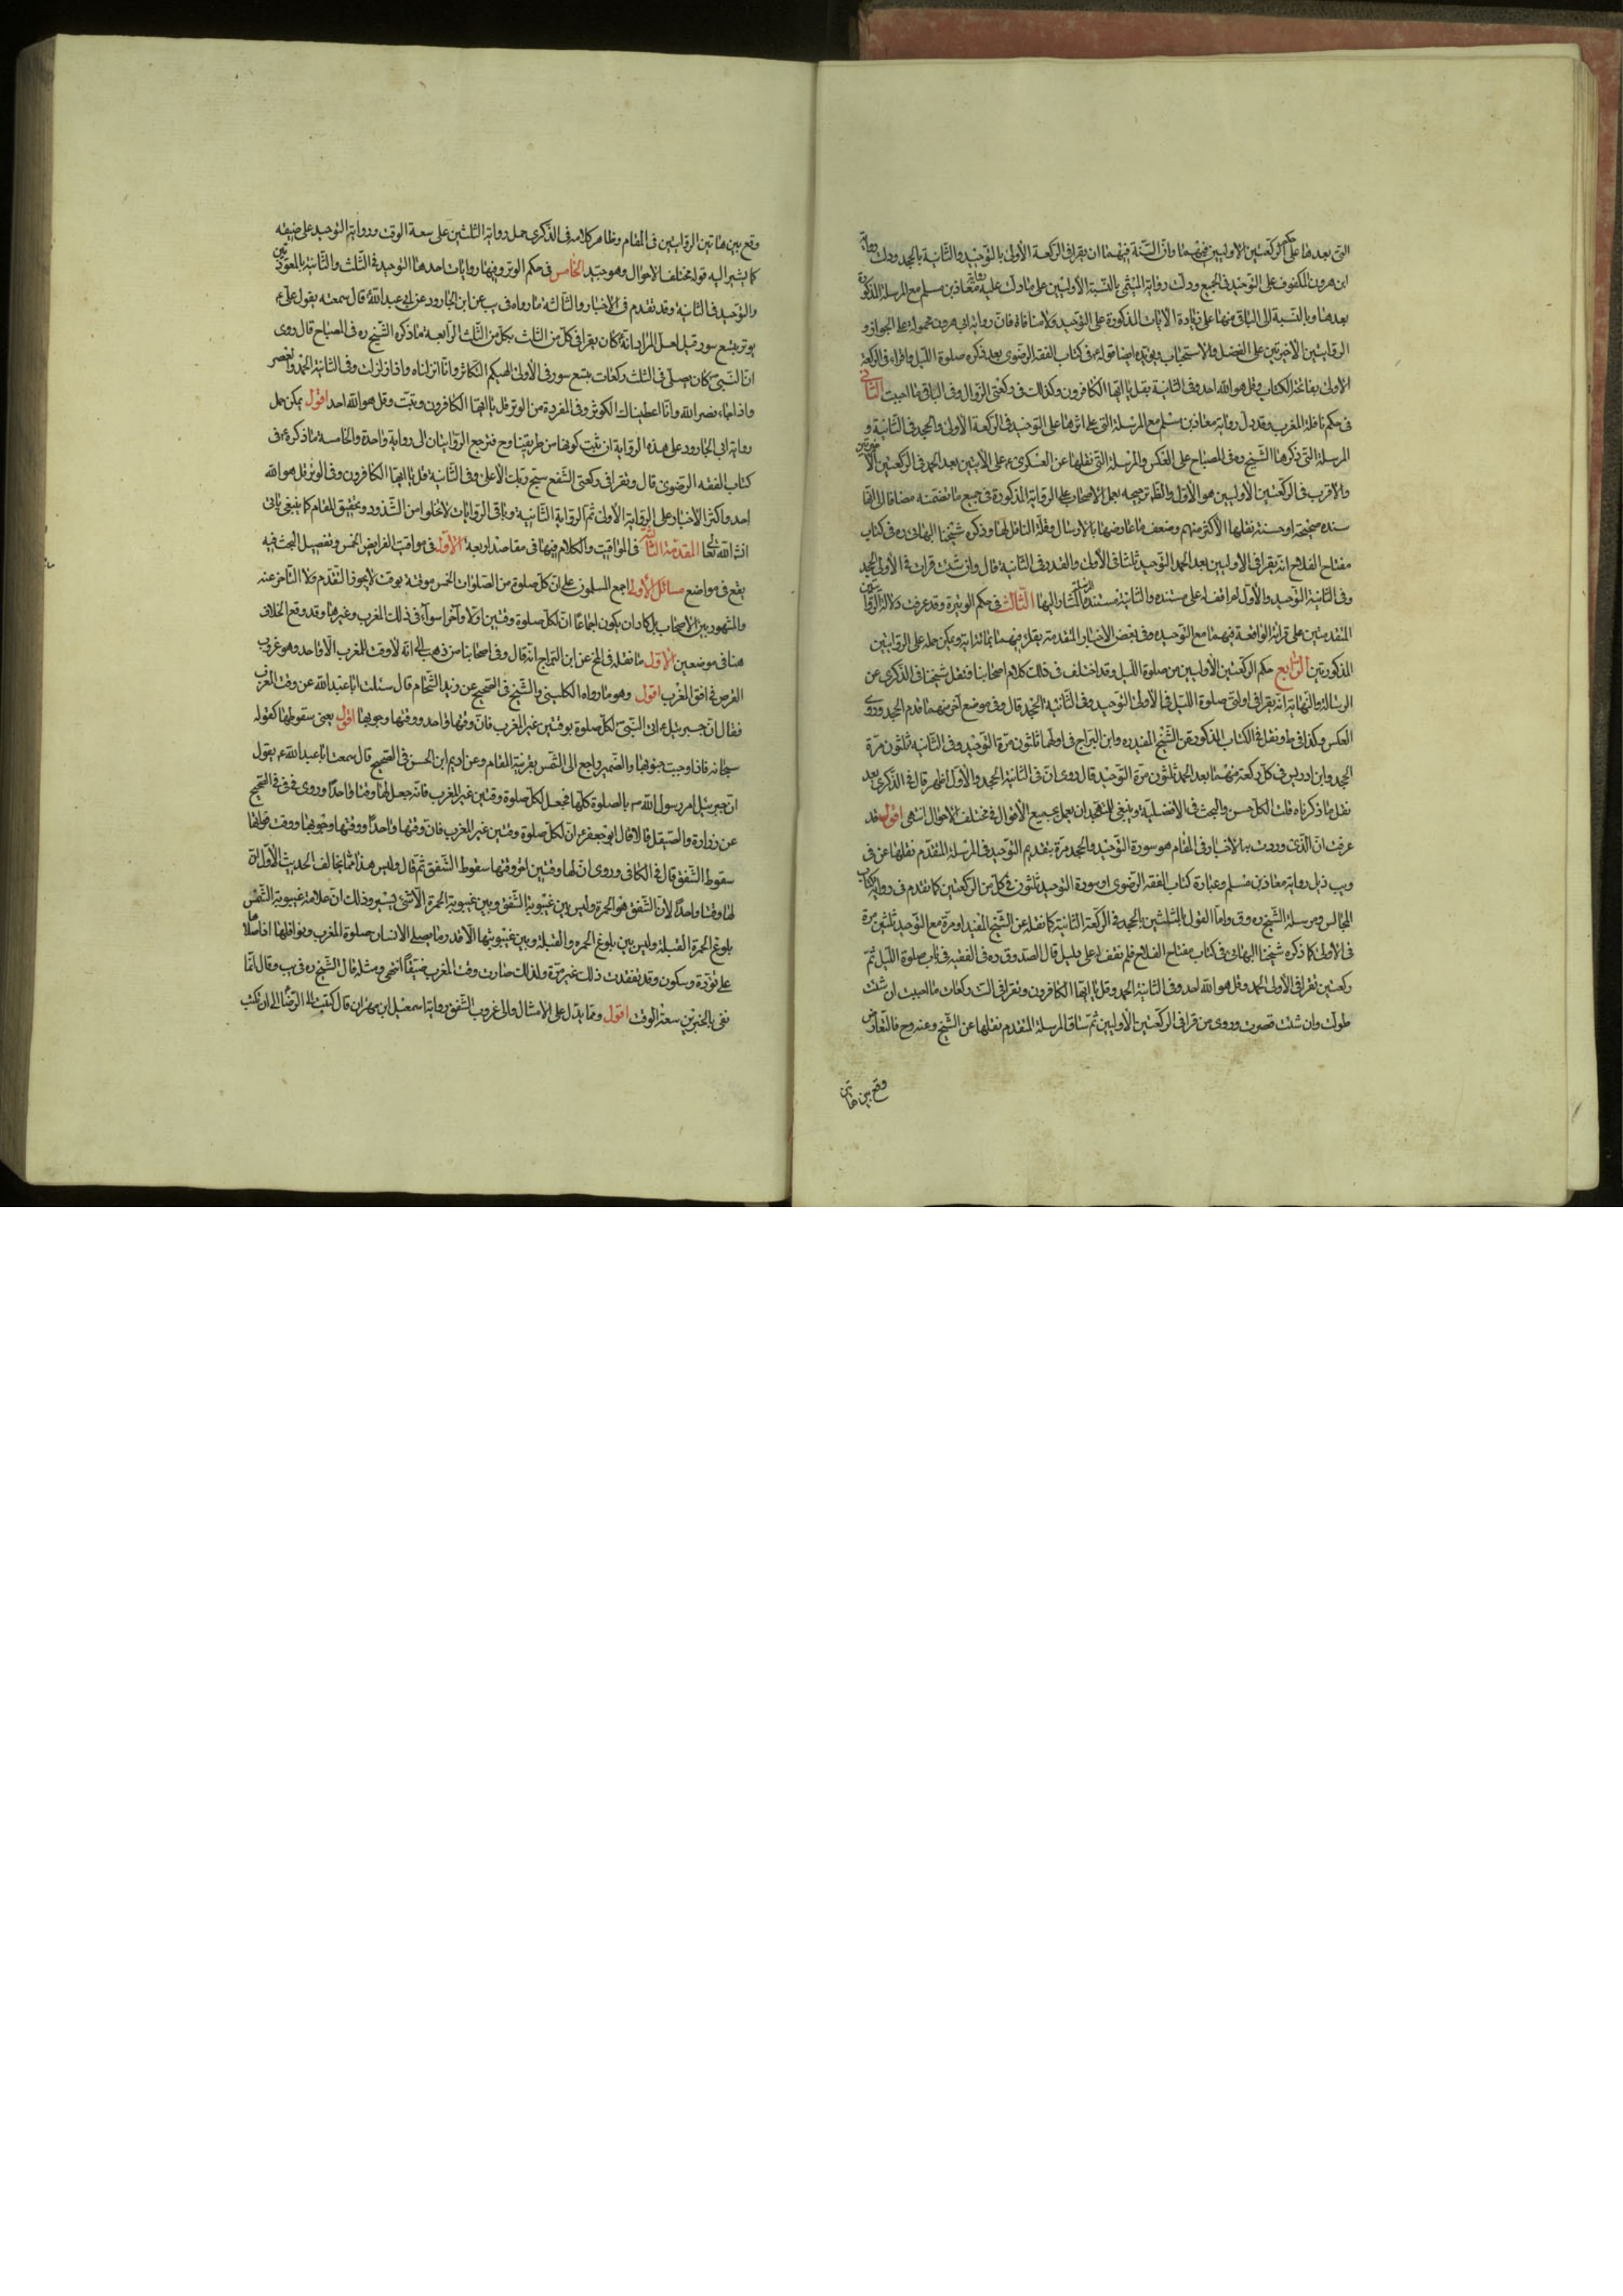 التى بعدها على حكم الركعتين الاوليين فيهما وانّ السّنة فيهما ان يقرا فى الركعة الأولى بالتوحيد والثانية بالجحد ودلت رواية
ابن هرون المكفوف على التوحيد فى الجميع ودلت رواية الميثمى بالنسبة الأوليين على ما دلت عليه رواية معاذ بن مسلم مع المرسلة المذكورة
بعدها وبالنسبة الى الباقى منها على زيادة الايات المذكورة على التوحيد ولا منافاة فان رواية ابى هرون محمولة على الجواز و
الروايتين الأخيرتين على الفضل والاستحباب ويؤيده ايضا قوله فى كتاب الفقه الرضوى بعد ذكره صلوة الليل واقراء فى الركعة
الاولى بفاتحة الكتاب وقل هو الله احد وفى الثانية بقل يا ايها الكافرون وكذلك فى ركعتى الزوال وفى الباقى ما احببت الثانى
فى حكم نافلة المغرب وقد دل رواية معاذ بن مسلم مع المرسلة التى على اثرها على التوحيد فى الركعة الأولى والجحد فى الثانية و
المرسلة التى ذكرها الشيخ ره فى المصباح على العكس والمرسلة التى نقلها عن العسكرى ع على الآيتين بعد الحمد فى الركعتين الأخيرتين
والاقرب فى الركعتين الأوليين هو الأول والظ ترجيحه بعمل الاصحاب على الرواية المذكورة فى جميع ما تضمنته مضافا الى القا
سنده صحيحة او حسنة نقلها الأكثر منهم وضعف ما عارضها بالارسال وقلة الناقل لها وذكر شيخنا البهائى ره فى كتاب
مفتاح الفلاح انه يقرا فى الاوليين بعد الحمد التوحيد ثلثا فى الأولى والقدر فى الثانية قال وان شئت قرات فى الأولى الجحد
وفى الثانية التوحيد والأول لم اقف له على مستنده والثانية مستنده المرسلة المشار اليها الثالث فى حكم الوتيرة وقد عرفت دلالة الروايتين
المتقدمتين على قرائة الواقعة فيهما مع التوحيد وفى بعض الاخبار المتقدمة يقراء فيهما بمائة اية ويمكن حمله على الروايتين
المذكورتين الرابع حكم الركعتين الأوليين من صلوة الليل وقد اختلف فى ذلك كلام اصحابنا فنقل شيخنا فى الذكرى عن
الرسالة والنهاية انه يقرا فى اولتى صلوة الليل فى الأولى التوحيد وفى الثانية الجحد قال وفى موضع آخر منهما قدم الجحد وروى
العكس وكذا فى ط ونقل فى الكتاب المذكور عن الشيخ المفيد ره وابن البراج فى اولهما ثلثون مرة التوحيد وفى الثانية ثلثون مرة
الجحد وابن ادريس فى كل ركعة منهما بعد الحمد ثلثون مرة التوحيد قال روى ان فى الثانية الجحد والأول اظهر قال فى الذكرى بعد
نقل ما ذكرناه قلت الكل حسن والبحث فى الافضلية وينبغى للمتهجد ان يعمل بجميع الأقوال فى مختلف الاحوال انتهى اقول قد
عرفت ان الذى وردت به الاخبار فى المقام هو سورة التوحيد والجحد مرة بتقديم التوحيد فى المرسلة المتقدم نقلها عن فى
ويب ذيل رواية معاذ بن مسلم وعبارة كتاب الفقه الرضوى او سورة التوحيد ثلثون فى كل من الركعتين كما تقدم فى رواية كتاب
المجالس ومرسلة الشيخ ره وق واما القول بالثلثين بالجحد فى الركعة الثانية كما نقله عن الشيخ المفيد او مرة مع التوحيد ثلثين مرة
فى الاولى كما ذكره شيخنا البهائى فى كتاب مفتاح الفلاح فلم نقف له على دليل قال الصدوق ره فى الفقيه فى باب صلوة الليل ثم
ركعتين تقرا فى الأولى الحمد وقل هو الله احد وفى الثانية الحمد وقل يا ايها الكافرون وتقرا فى الست ركعات ما احببت ان شئت
طولت وان شئت قصرت وروى من قرا فى الركعتين الأوليين ثم ساق المرسلة المتقدم نقلها عن الشيخ وعنه وح فالتعارض
وقع بين هاتين
وقع بين هاتين الروايتين فى المقام وظاهر كلامه فى الذكرى حمل رواية الثلثين على سعة الوقت ورواية التوحيد على ضيقه
كما يشير اليه قوله مختلف الاحوال وهو جيد الخامس فى حكم الوتر وفيها روايات احدها التوحيد فى الثلث والثانية بالمعوذتين
والتوحيد فى الثانية وقد تقدم فى الاخبار والثالثة ما رواه فى يب عن ابن الجارود عن ابى عبد الله قال سمعته يقول على ع
يوتر بتسع سور قيل لعل المراد انه كان يقرا فى كل من الثلث بكل من الثلث الرابعة ما ذكره الشيخ ره فى المصباح قال روى
ان النبى ص كان يصلى فى الثلث ركعات بتسع سور فى الأولى الهيكم التكاثر وانا انزلناه واذا زلزلت وفى الثانية الحمد والعصر
واذا جاء نصر الله وانا اعطيناك الكوثر وفى المفردة من الوتر قل يا ايها الكافرون وتبت وقل هو الله احد اقول يمكن حمل
رواية ابى الجارود على هذه الرواية ان ثبت كونها من طريقنا وح فترجع الروايتان الى رواية واحدة والخامسة ما ذكره ع فى
كتاب الفقه الرضوى قال وتقرا فى ركعتى الشفع سبح ربك الأعلى وفى الثانية قل يا ايها الكافرون وفى الوتر قل هو الله
احد واكثر الأخبار على الرواية الأولى ثم الرواية الثانية وباقى الروايات لا تخلوا من الشذوذ وتحقيق المقام كما ينبغى ياتى
انشاء الله تعالى المقدمة الثالثة فى المواقيت والكلام فيها فى مقاصد اربعة الاول فى مواقيت الفرايض الخمس وتفصيل البحث فيه
يقع فى مواضع مسائل الأولى اجمع المسلمون على ان كل صلوة من الصلوات الخمس موقتة بوقت لا يجوز التقدم ولا التاخر عنه
والمشهور بين الاصحاب بل كاد ان يكون اجماعا ان لكل صلوة وقتين اولا وآخرا سواء فى ذلك المغرب وغيرها وقد وقع الخلاف
هنا فى موضعين الاول ما نقله فى المخ عن ابن البراج انه قال وفى اصحابنا من ذهب الى انه لا وقت للمغرب الا واحد وهو غروب
القرص فى افق المغرب اقول وهو ما رواه الكلينى والشيخ فى الصحيح عن زيد الشحام قال سئلت ابا عبد الله عن وقت المغرب
فقال ان جبرئيل ع اتى النبى ص لكل صلوة بوقتين غير المغرب فان وقتها واحد ووقتها وجوبها اقول يعنى سقوطها كقوله
سبحانه فاذا وجبت جنوبها والضمير راجع الى الشمس بقرينة المقام وعن اديم ابن الحسن فى الصحيح قال سمعت ابا عبد الله ع يقول
ان جبرئيل امر رسول الله ص بالصلوة كلها فجعل لكل صلوة وقتين غير المغرب فانه جعل لها وقتا واحدا وروى فى فى الصحيح
عن زرارة والفضيل قالا قال ابو جعفر ع ان لكل صلوة وقتين غير المغرب فان وقتها واحدا ووقتها وجوبها ووقت فواتها
سقوط الشفق قال فى الكافى وروى ان لها وقتين اخر وقتها سقوط الشفق ثم قال وليس هذا مما يخالف الحديث الأول ان
لها وقتا واحدا لان الشفق هو الحمرة وليس بين غيبوبة الشفق وبين غيبوبة الحمرة الا شئ يسير وذلك ان علامة غيبوبة الشمس
بلوغ الحمرة القبلة وليس بين بلوغ الحمرة والقبلة وبين غيبوبتها الا قدر ما يصلى الانسان صلوة المغرب ونوافلها اذا صلاها
على تؤدة وسكون وقد تفقدت ذلك غير مرة ولذلك صارت وقت المغرب ضيقا انتهى ومثله قال الشيخ ره فى يب وقال انما
نفى بالخبرين سعة الوقت اقول ومما يدل على الامتثال والى غروب الشفق رواية اسمعيل ابن مهران قال كتبت الى الرضا الى ان كتب